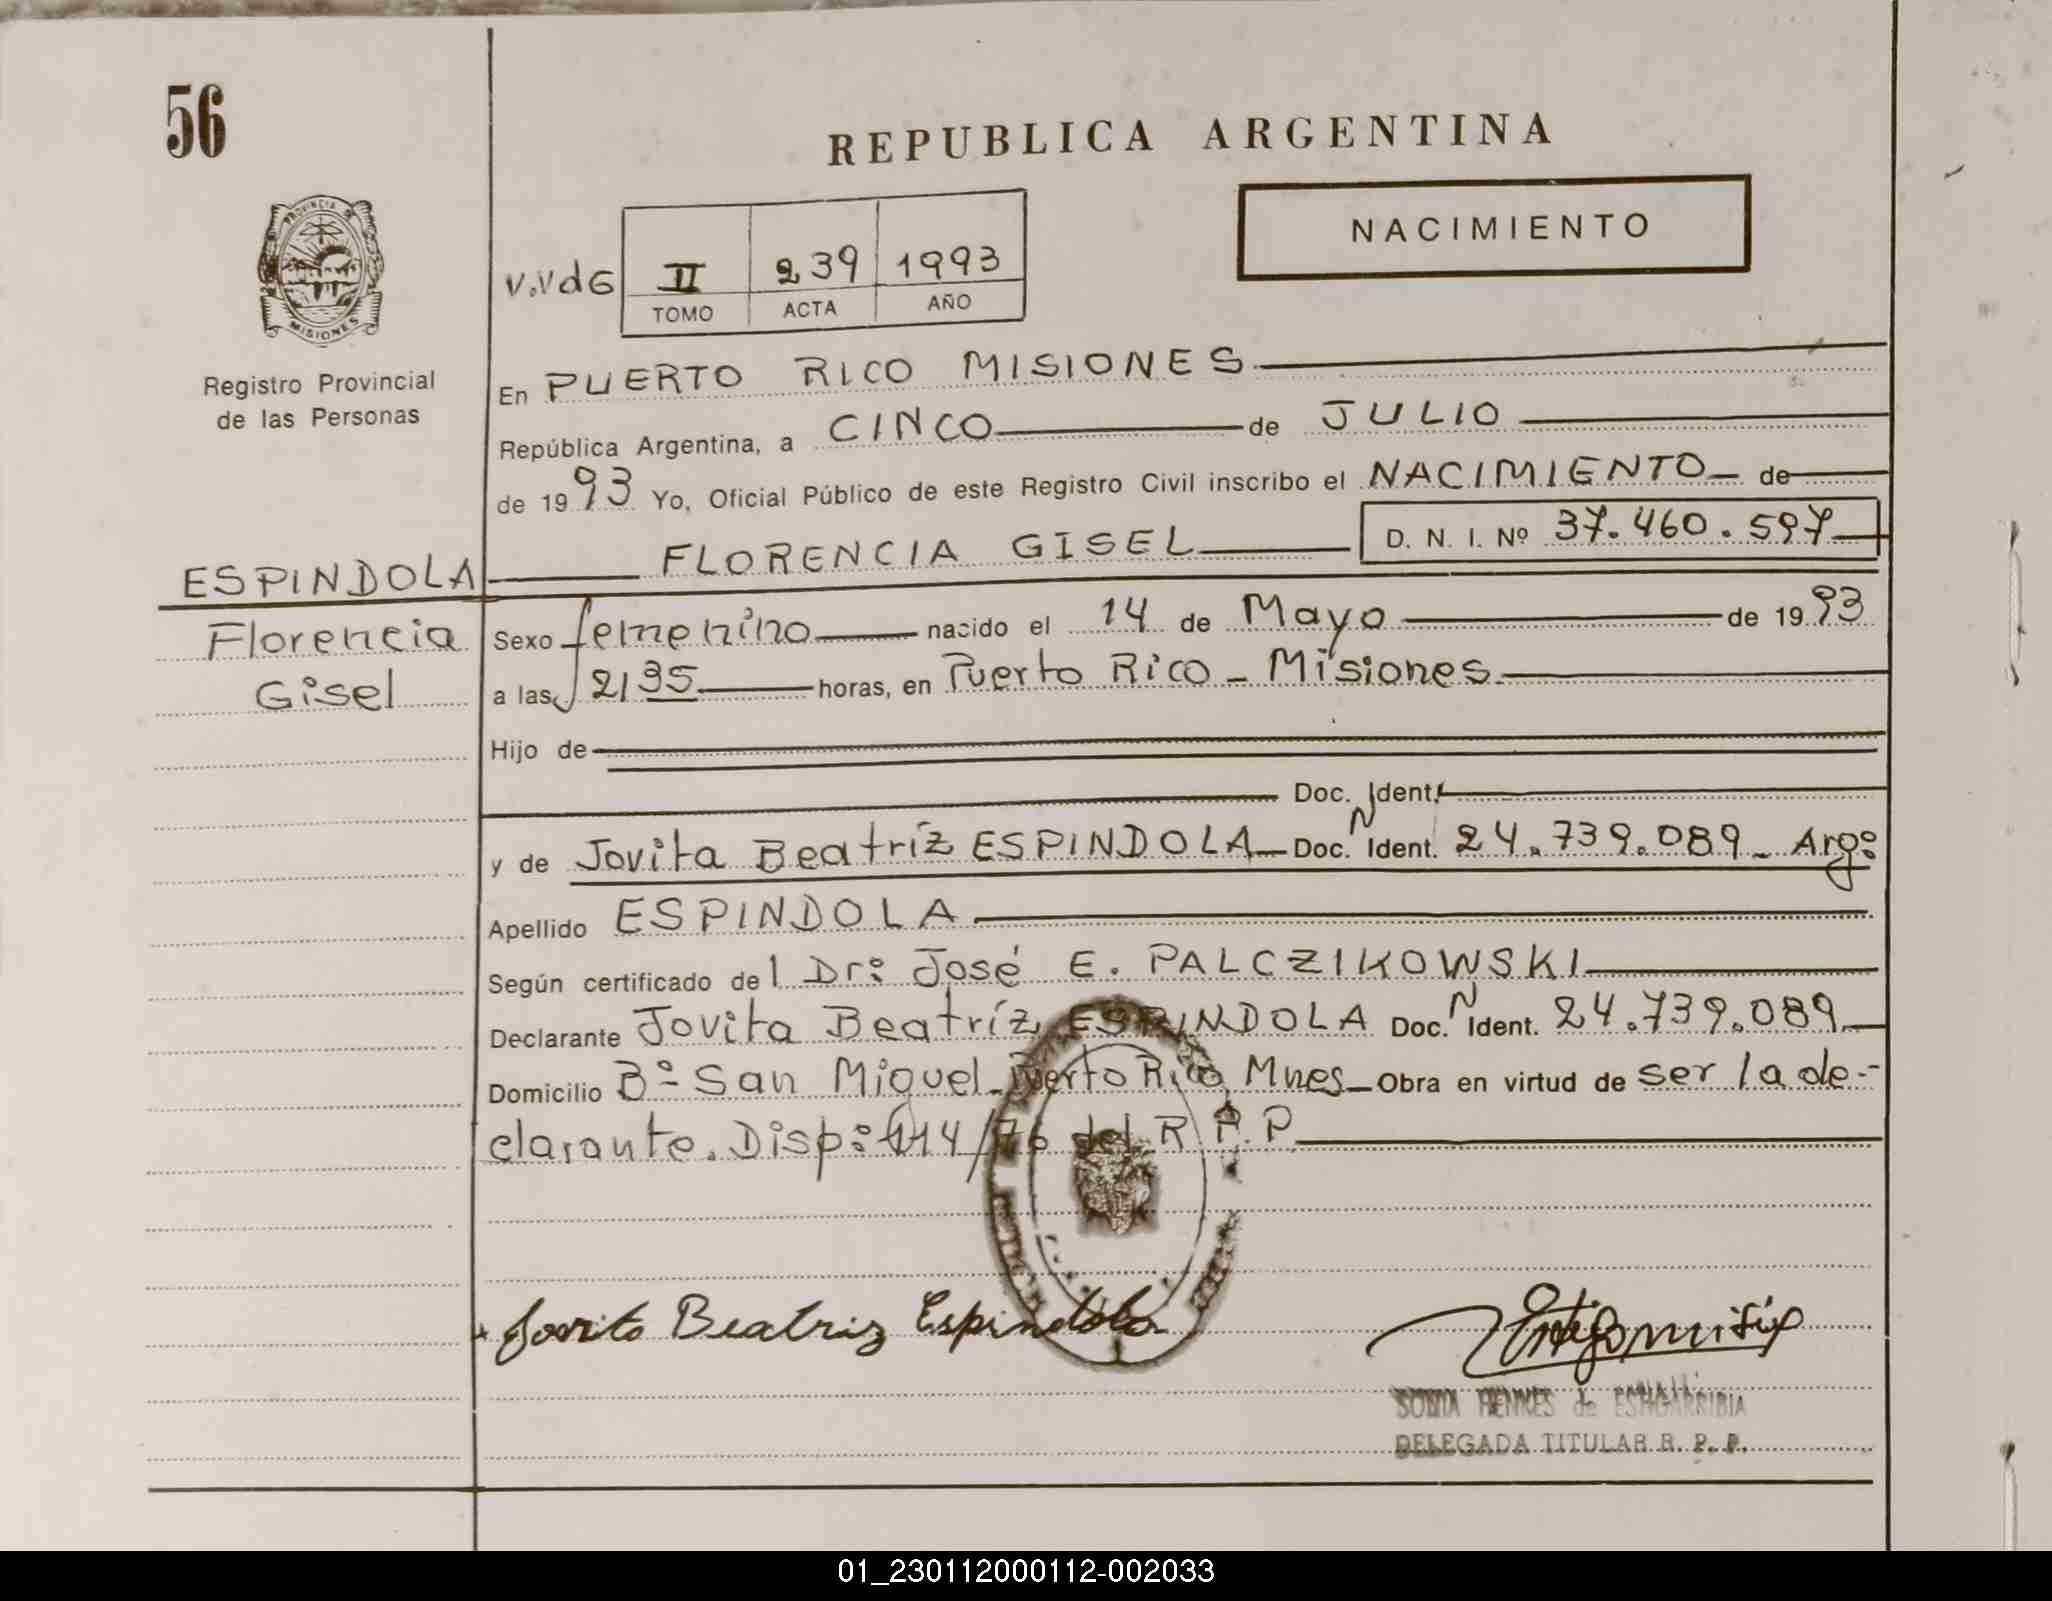 56
REPUBLICA ARGENTINA
NACIMIENTO
PROVINCIA DE
MISIONES
Registro Provincial
de las Personas
V.VdG II 239 1993
TOMO ACTA AÑO
En PUERTO RICO MISIONES
República Argentina, a CINCO de JULIO
de 1993 Yo, Oficial Público de este Registro Civil inscribo el NACIMIENTO de
ESPINDOLA FLORENCIA GISEL D. N. I. Nº 37.460.597
Florencia
Gisel
Sexo femenino nacido el 14 de Mayo de 1993
a las 2135 horas, en Puerto Rico - Misiones
Hijo de
Doc. Ident.
y de Jovita Beatríz ESPINDOLA Doc. N Ident. 24.739.089 - Argº
Apellido ESPINDOLA
Según certificado del Drº José E. PALCZIKOWSKI
Declarante Jovita Beatríz ESPINDOLA Doc. N Ident. 24.739.089
Domicilio Bº San Miguel - Puerto Rico Mnes Obra en virtud de ser la de-
clarante. Disp: 114/76 del R.P.P
Jovita Beatriz Espindola
SONIA HENNES de ESTIGARRIBIA
DELEGADA TITULAR R. P. P.
01_230112000112-002033